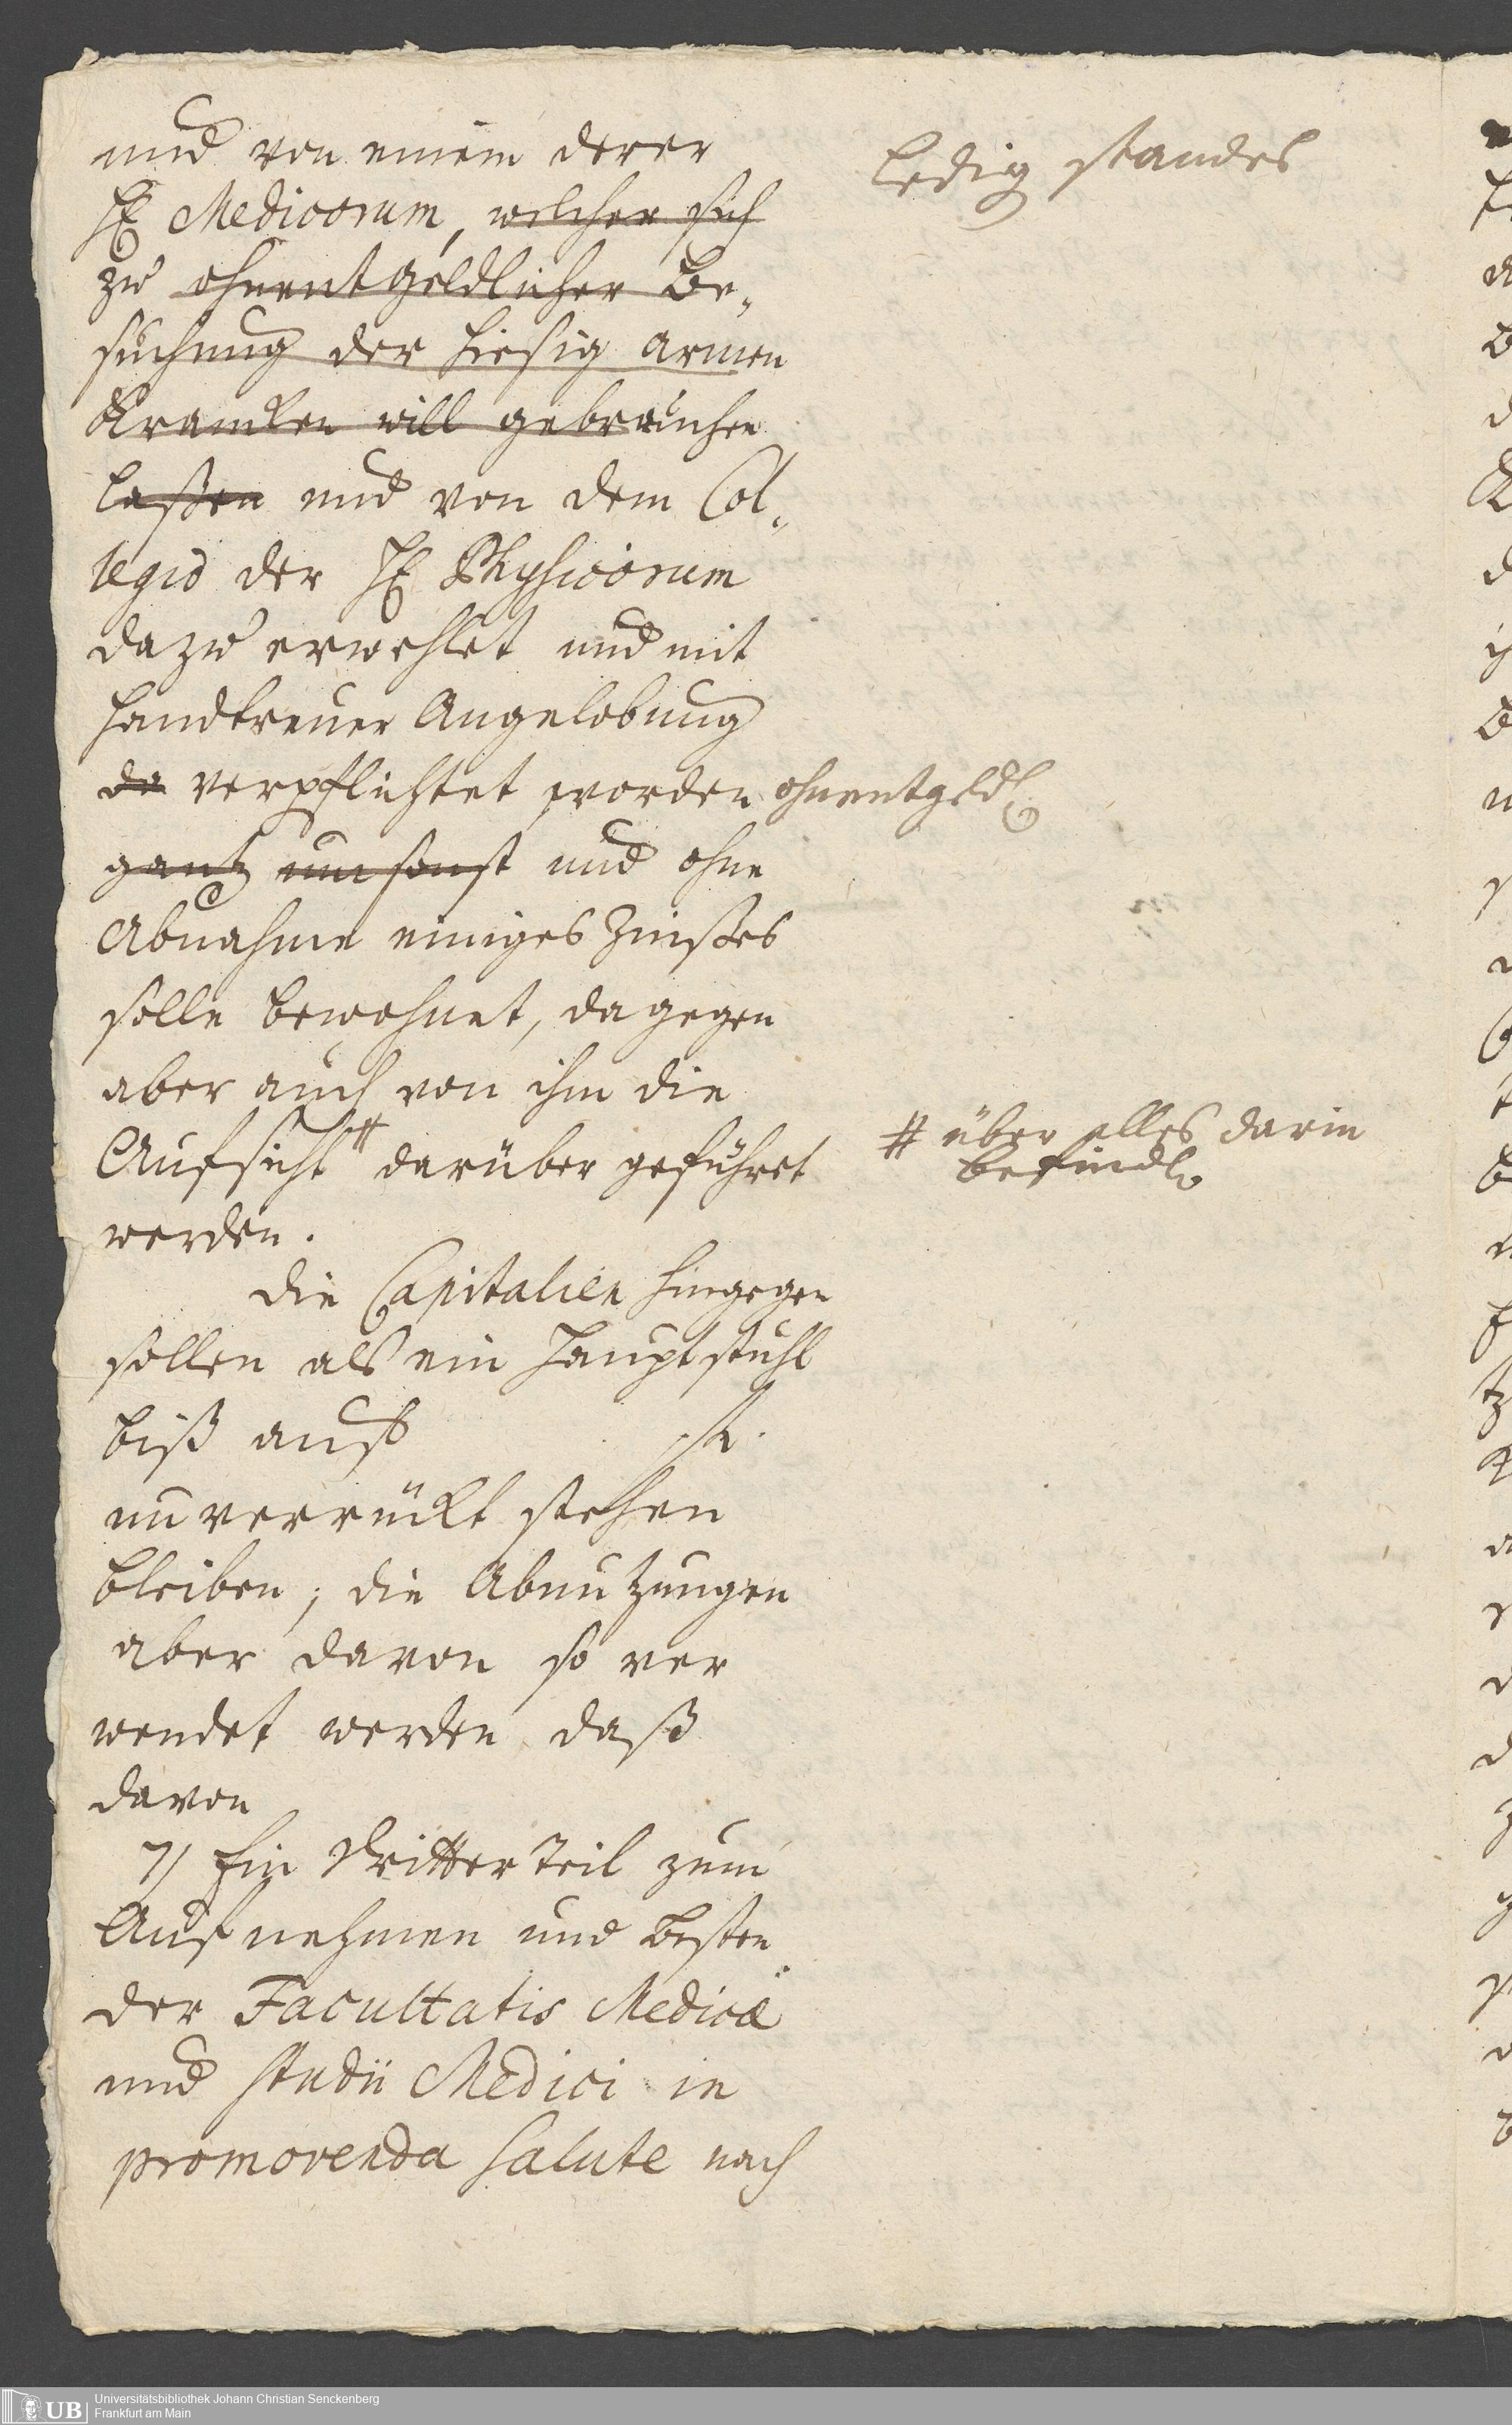 und von einem derer
ledig standes
H. Medicorum, welcher sich
zu ohnentgeldlicher Be„
suchung der hiesig armen
Krancken will gebrauchen
laßen und von dem Col„
legio der H. Physicorum
dazu erwehlet und mit
handtreuer Angelobung
da verpflichtet worden ohnentgeldl.
gantz umsonst und ohne
Abnahme einiges Zinßes
solle bewohnet, dagegen
aber auch von ihm die
Aufsicht # darüber geführet
# über alles darin
befindl.
werden.
die Capitalien hingegen
sollen als ein Hauptstuhl
biß auf
unverrückt stehen
bleiben; die Abnutzungen
aber davon so ver
wendet werden daß
davon
7) Ein dritter Teil zum
Aufnehmen und besten
der Facultatis Medicæ
und studii Medici in
promovenda salute nach
UB
Universitätsbibliothek Johann Christian Senckenberg
Frankfurt am Main